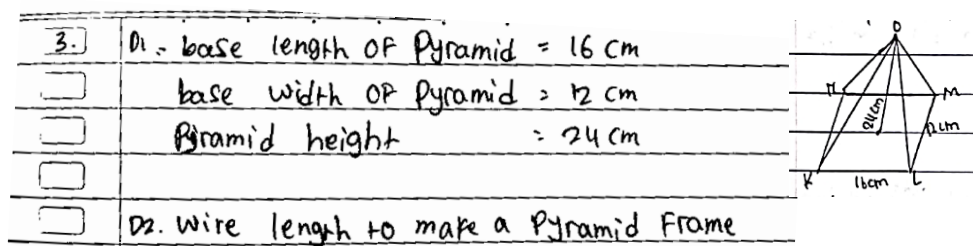 3. D1. base length OF Pyramid = 16 cm
base width OF Pyramid = 12 cm
Pyramid height = 24 cm
D2. Wire length to make a Pyramid Frame
O
N M
24cm 12cm
K 16cm L